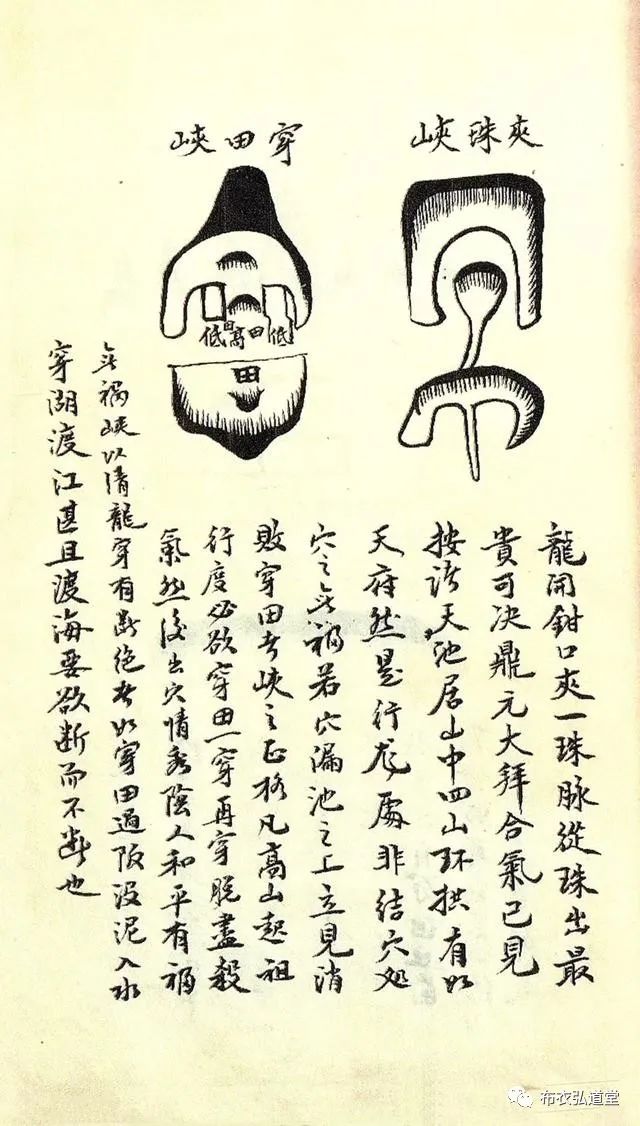 夾珠峽
穿田峽
低田高田低
田
龍開鉗口夾一珠脉從珠出最
貴可决鼎元大拜合氣已見
按諸天池居山中四山环拱有如
天府然是行龙處非结穴处
穴之無福若穴漏池之上立見消
敗穿田者峽之正格凡高山起祖
行度必欲穿田一穿再穿脱盡殺
氣然後出穴情秀陰人和平有福
無禍峽以清龍穿有断绝者如穿田過阪没泥入水
穿湖渡江甚且渡海要欲断而不断也
布衣弘道堂